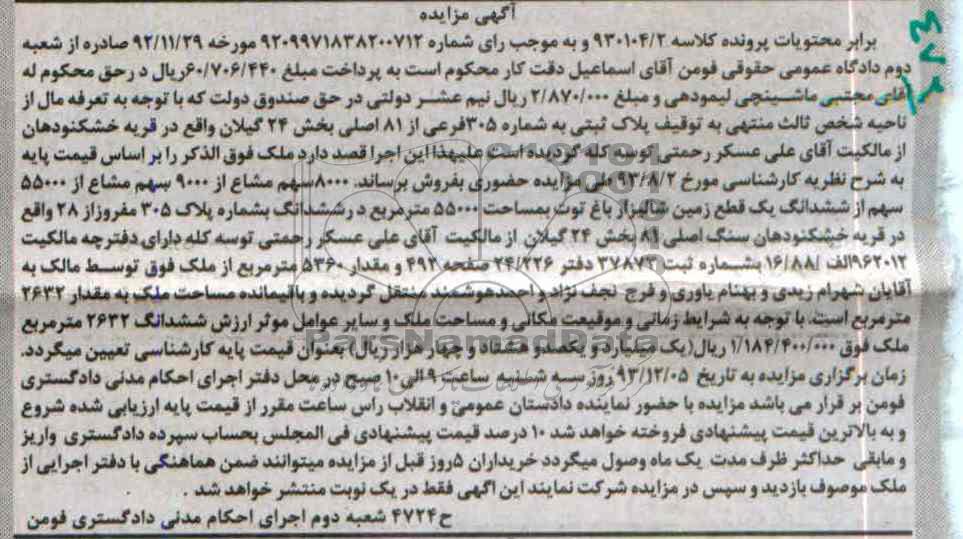 آگهی مزایده
برابر محتویات پرونده کلاسه ۹۳۰۱۰۴/۲ و به موجب رای شماره ۹۲۰۹۹۷۱۸۳۸۲۰۰۷۱۲ مورخه ۹۲/۱۱/۲۹ صادره از شعبه
دوم دادگاه عمومی حقوقی فومن آقای اسماعیل دقت کار محکوم است به پرداخت مبلغ ۶۰/۷۰۶/۴۴۰ریال د رحق محکوم له
آقای مجتبی ماشینچی لیمودهی و مبلغ ۲/۸۷۰/۰۰۰ ریال نیم عشر دولتی در حق صندوق دولت که با توجه به تعرفه مال از
ناحیه شخص ثالث منتهی به توقیف پلاک ثبتی به شماره ۳۰۵فرعی از ۸۱ اصلی بخش ۲۴ گیلان واقع در قریه خشکنودهان
از مالکیت آقای علی عسکر رحمتی توسه کله گردیده است علیهذا این اجرا قصد دارد ملک فوق الذکر را بر اساس قیمت پایه
به شرح نظریه کارشناسی مورخ ۹۳/۸/۲ طی مزایده حضوری بفروش برساند. ۸۰۰۰سهم مشاع از ۹۰۰۰ سهم مشاع از ۵۵۰۰۰
سهم از ششدانگ یک قطع زمین شالیزار باغ توت بمساحت ۵۵۰۰۰ مترمربع د رششدانگ بشماره پلاک ۳۰۵ مفروزاز ۲۸ واقع
در قریه خشکنودهان سنگ اصلی ۸۱ بخش ۲۴ گیلان از مالکیت آقای علی عسکر رحمتی توسه کله دارای دفترچه مالکیت
۹۶۲۰۱۲الف /۱۶/۸۸ بشماره ثبت ۳۷۸۷۳ دفتر ۲۴/۲۲۶ صفحه ۴۹۲ و مقدار ۵۳۶۰ مترمربع از ملک فوق توسط مالک به
آقایان شهرام زیدی و بهنام یاوری و فرج نجف نژاد و احمدهوشمند منتقل گردیده و باقیمانده مساحت ملک به مقدار ۲۶۳۲
مترمربع است. با توجه به شرایط زمانی و موقیعت مکانی و مساحت ملک و سایر عوامل موثر ارزش ششدانگ ۲۶۳۲ مترمربع
ملک فوق ۱/۱۸۴/۴۰۰/۰۰۰ ریال( یک میلیارد و یکصدو هشتاد و چهار هزار ریال) بعنوان قیمت پایه کارشناسی تعیین میگردد.
زمان برگزاری مزایده به تاریخ ۹۳/۱۲/۰۵ روز سه شنبه ساعت ۹ الی ۱۰ صبح در محل دفتر اجرای احکام مدنی دادگستری
فومن بر قرار می باشد مزایده با حضور نماینده دادستان عمومی و انقلاب راس ساعت مقرر از قیمت پایه ارزیابی شده شروع
و به بالاترین قیمت پیشنهادی فروخته خواهد شد ۱۰ درصد قیمت پیشنهادی فی المجلس بحساب سپرده دادگستری واریز
و مابقی حداکثر ظرف مدت یک ماه وصول میگردد خریداران ۵روز قبل از مزایده میتوانند ضمن هماهنگی با دفتر اجرایی از
ملک موصوف بازدید و سپس در مزایده شرکت نمایند این اگهی فقط در یک نوبت منتشر خواهد شد .
ح۴۷۲۴ شعبه دوم اجرای احکام مدنی دادگستری فومن
ParsNamadData